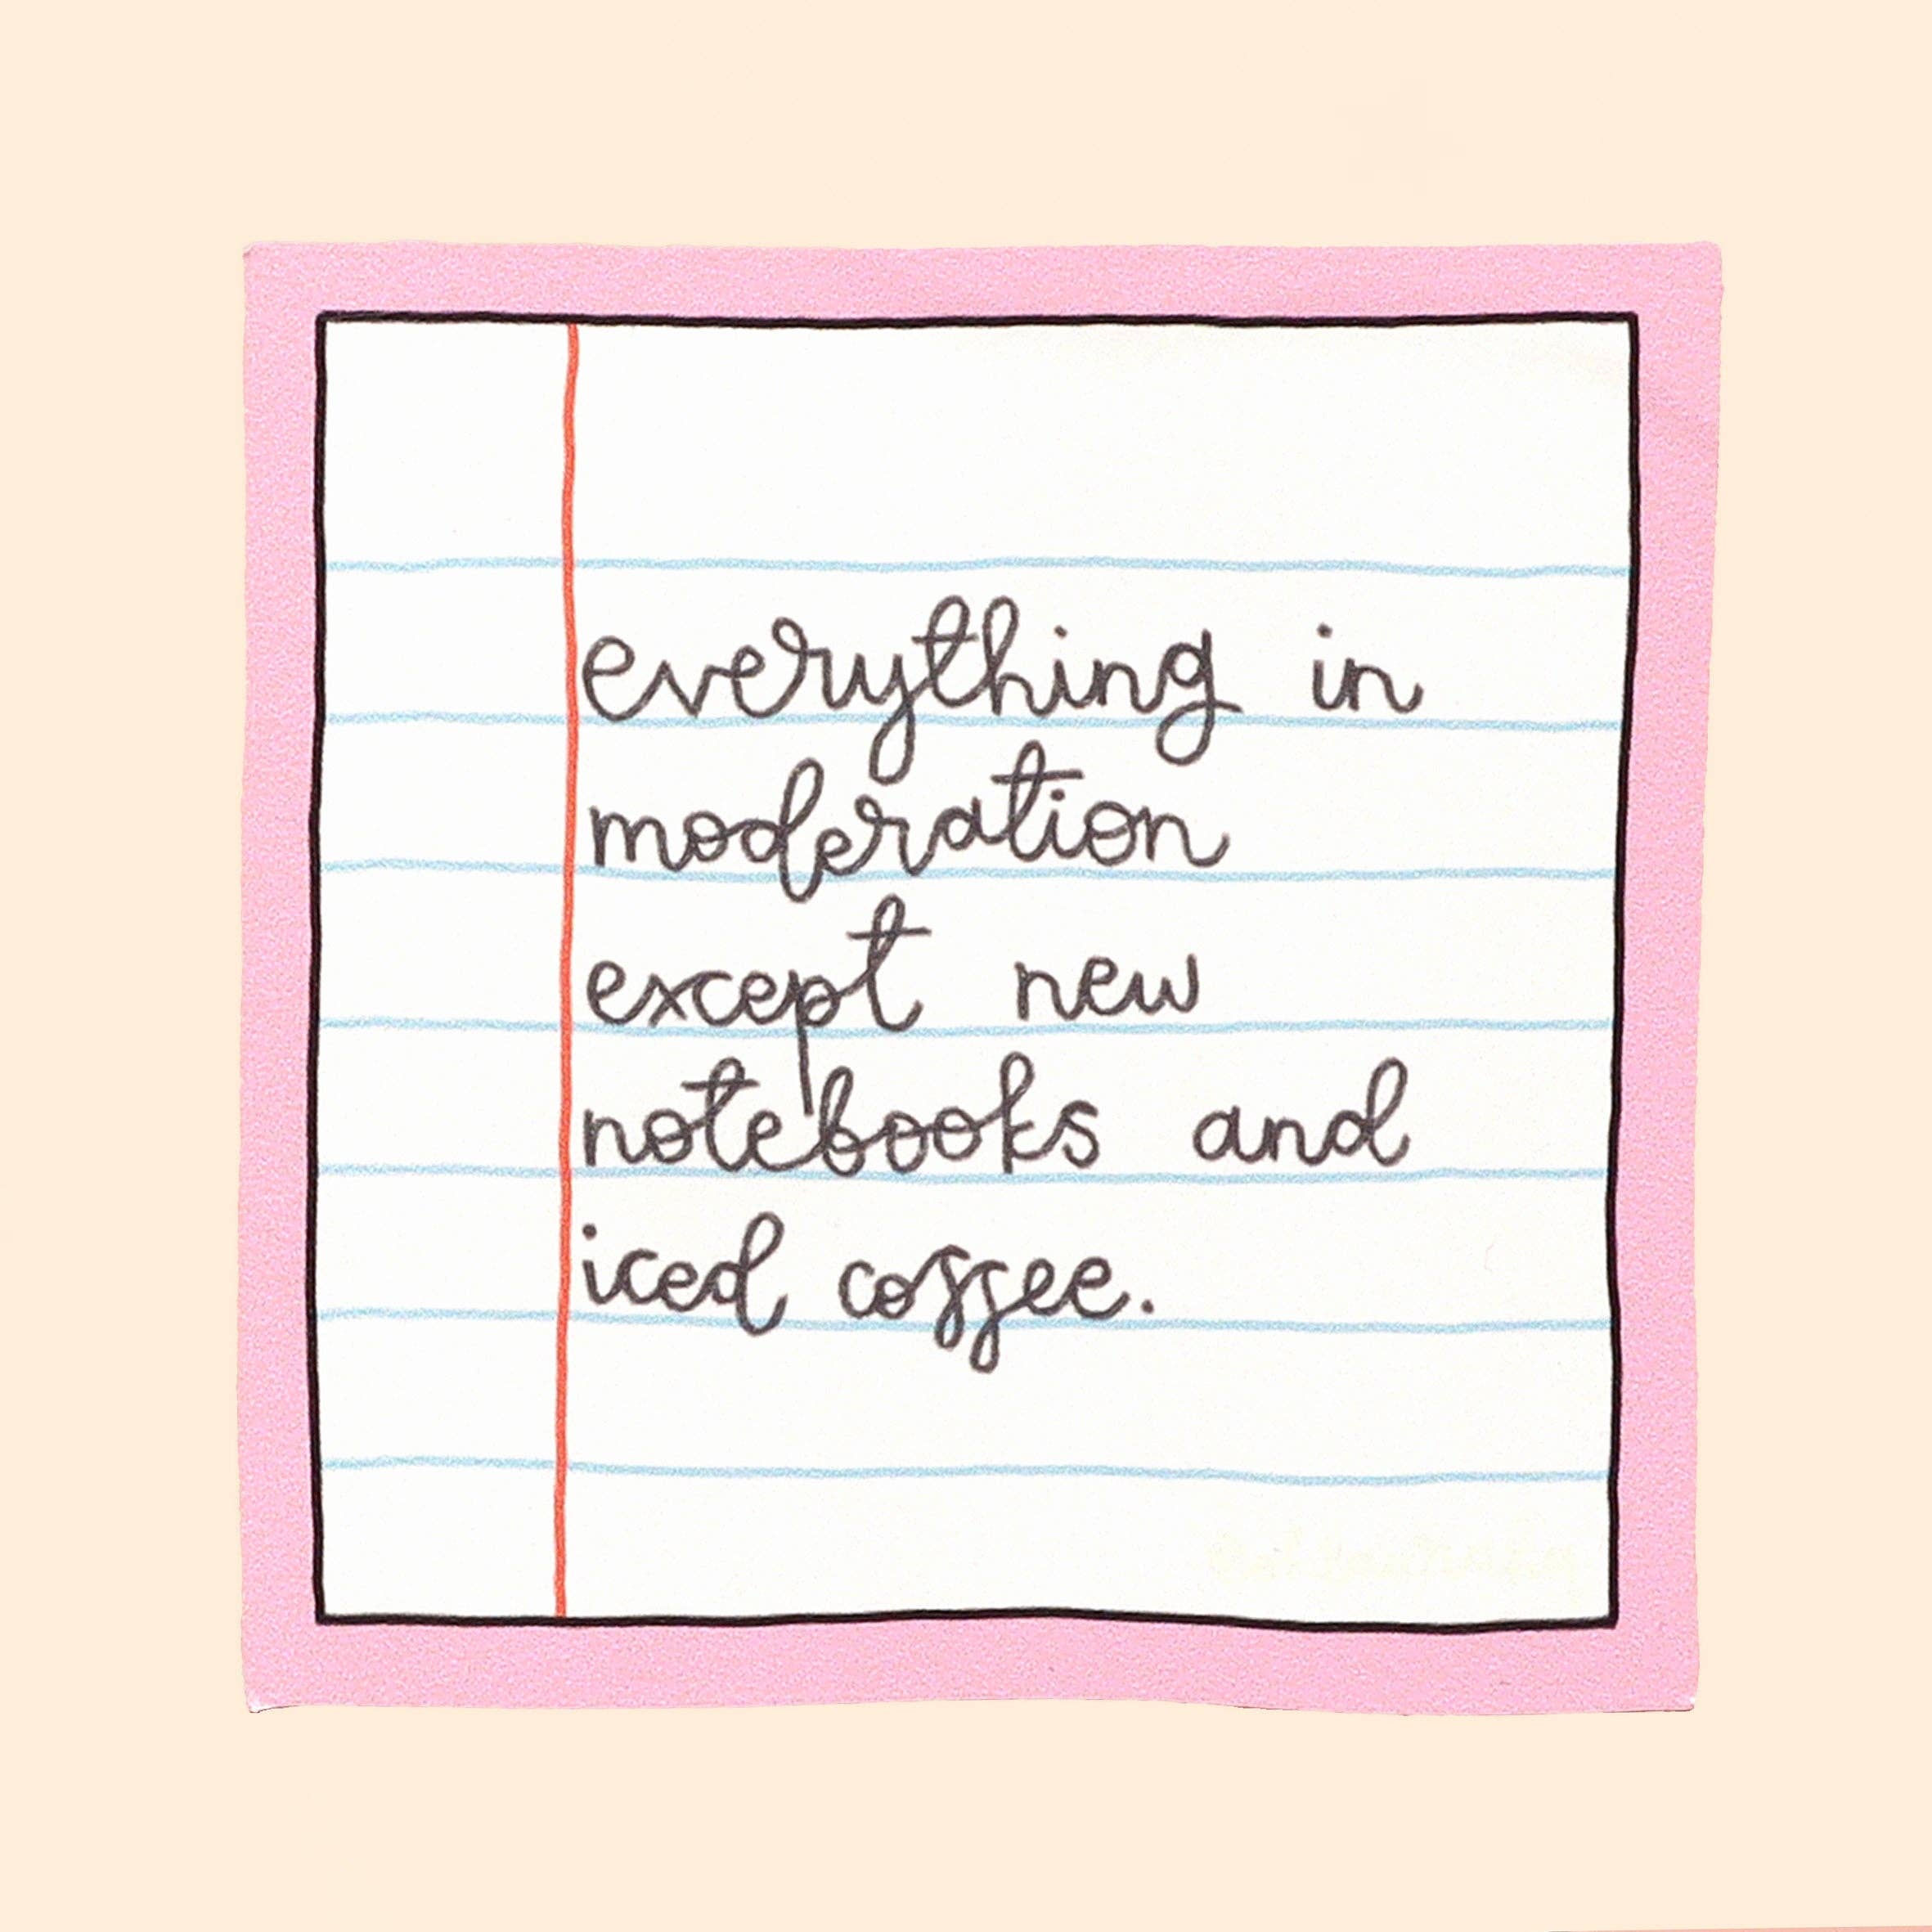 everything in
moderation
except new
notebooks and
iced coffee.